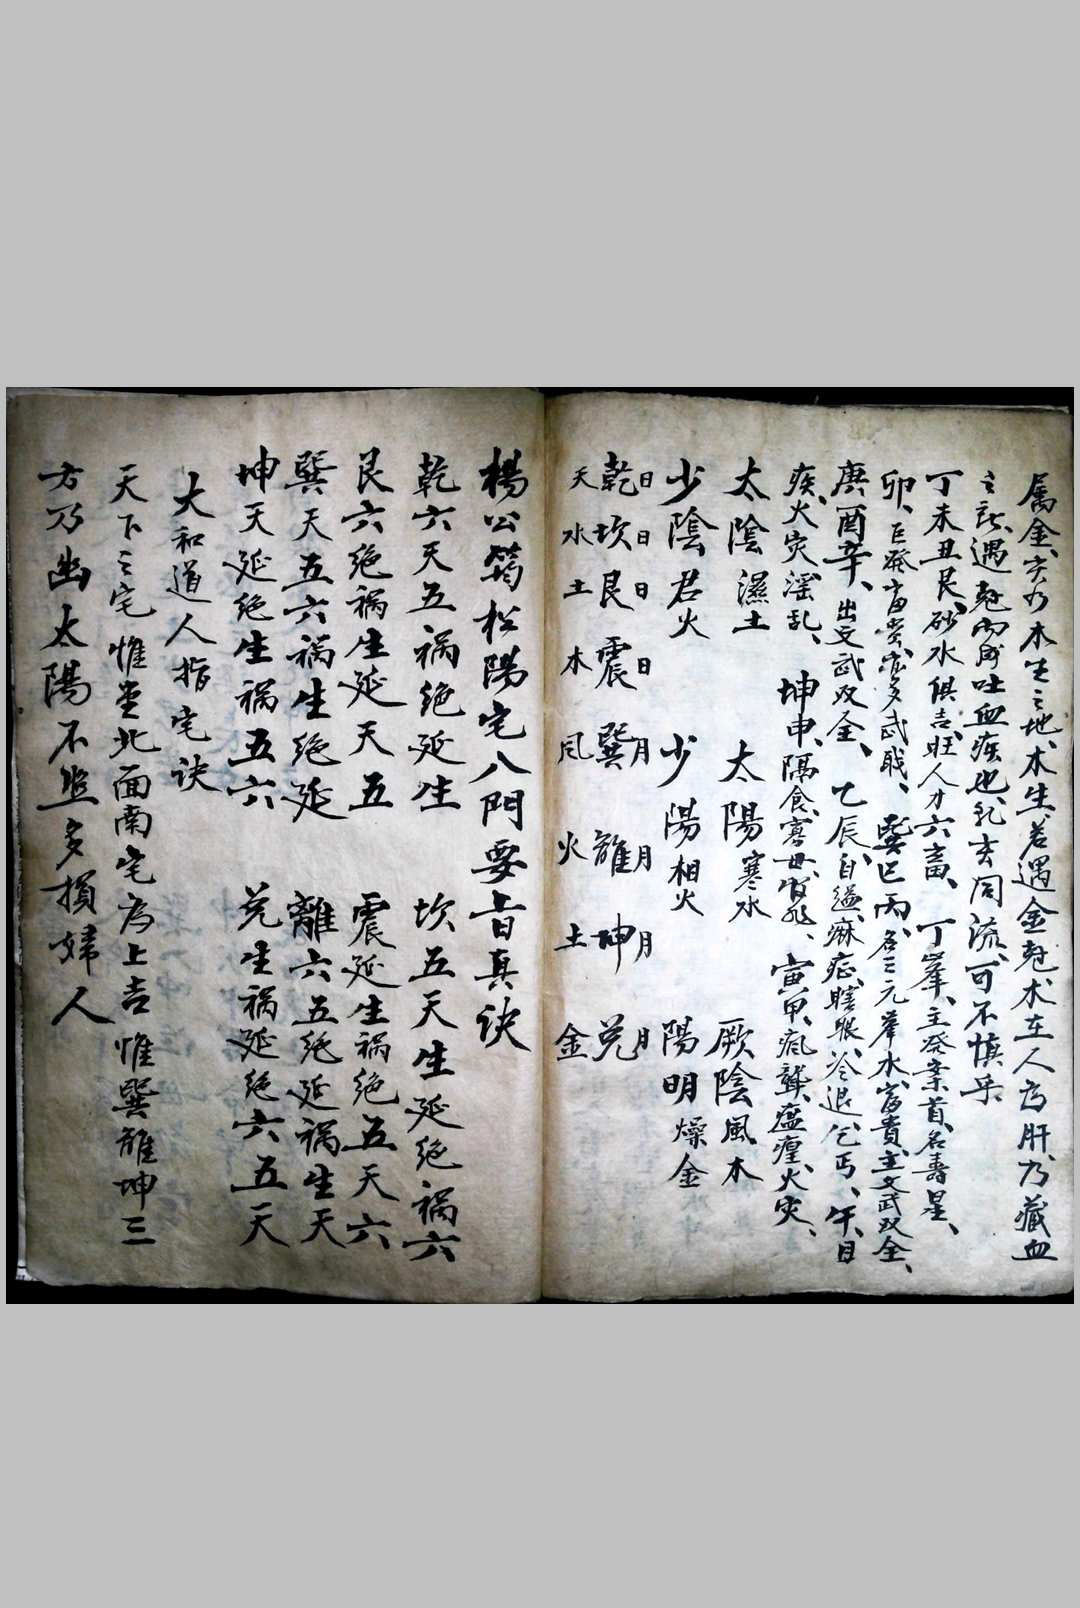 属金、亥乃木生之地、木生若遇金尅、木在人為肝、乃藏血
之氣、遇尅吐血疾也、乱玄同流、可不慎乎
丁未丑艮、砂水俱吉、旺人才六畜、丁峯、主發案首、名壽星、
卯、巨發富貴、武職、巽巳丙、名三元峯水、富貴、主文武双全、
庚酉辛、出文武双全、乙辰、自縊、麻症、瞎眼、冷退、乞丐、午、目
疾、火灾淫乱、坤申、隔食、寡母、寅甲、瘋聾、瘟瘽、火灾、
太陰濕土 太陽寒水 厥陰風木
少陰君火 少陽相火 陽明燥金
日日日日月月月月
乾坎艮震巽離坤兑
天水土木風火土金
楊公筠松陽宅八門要旨真诀
乾六天五祸绝延生 坎五天生延绝祸六
艮六绝祸生延天五 震延生祸绝五天六
巽天五六祸生绝延 離六五绝延祸生天
坤天延绝生祸五六 兑生祸延绝六五天
大和道人指宅诀
天下之宅惟坐北面南宅為上吉惟巽離坤三
方乃幽太陽不照多損婦人